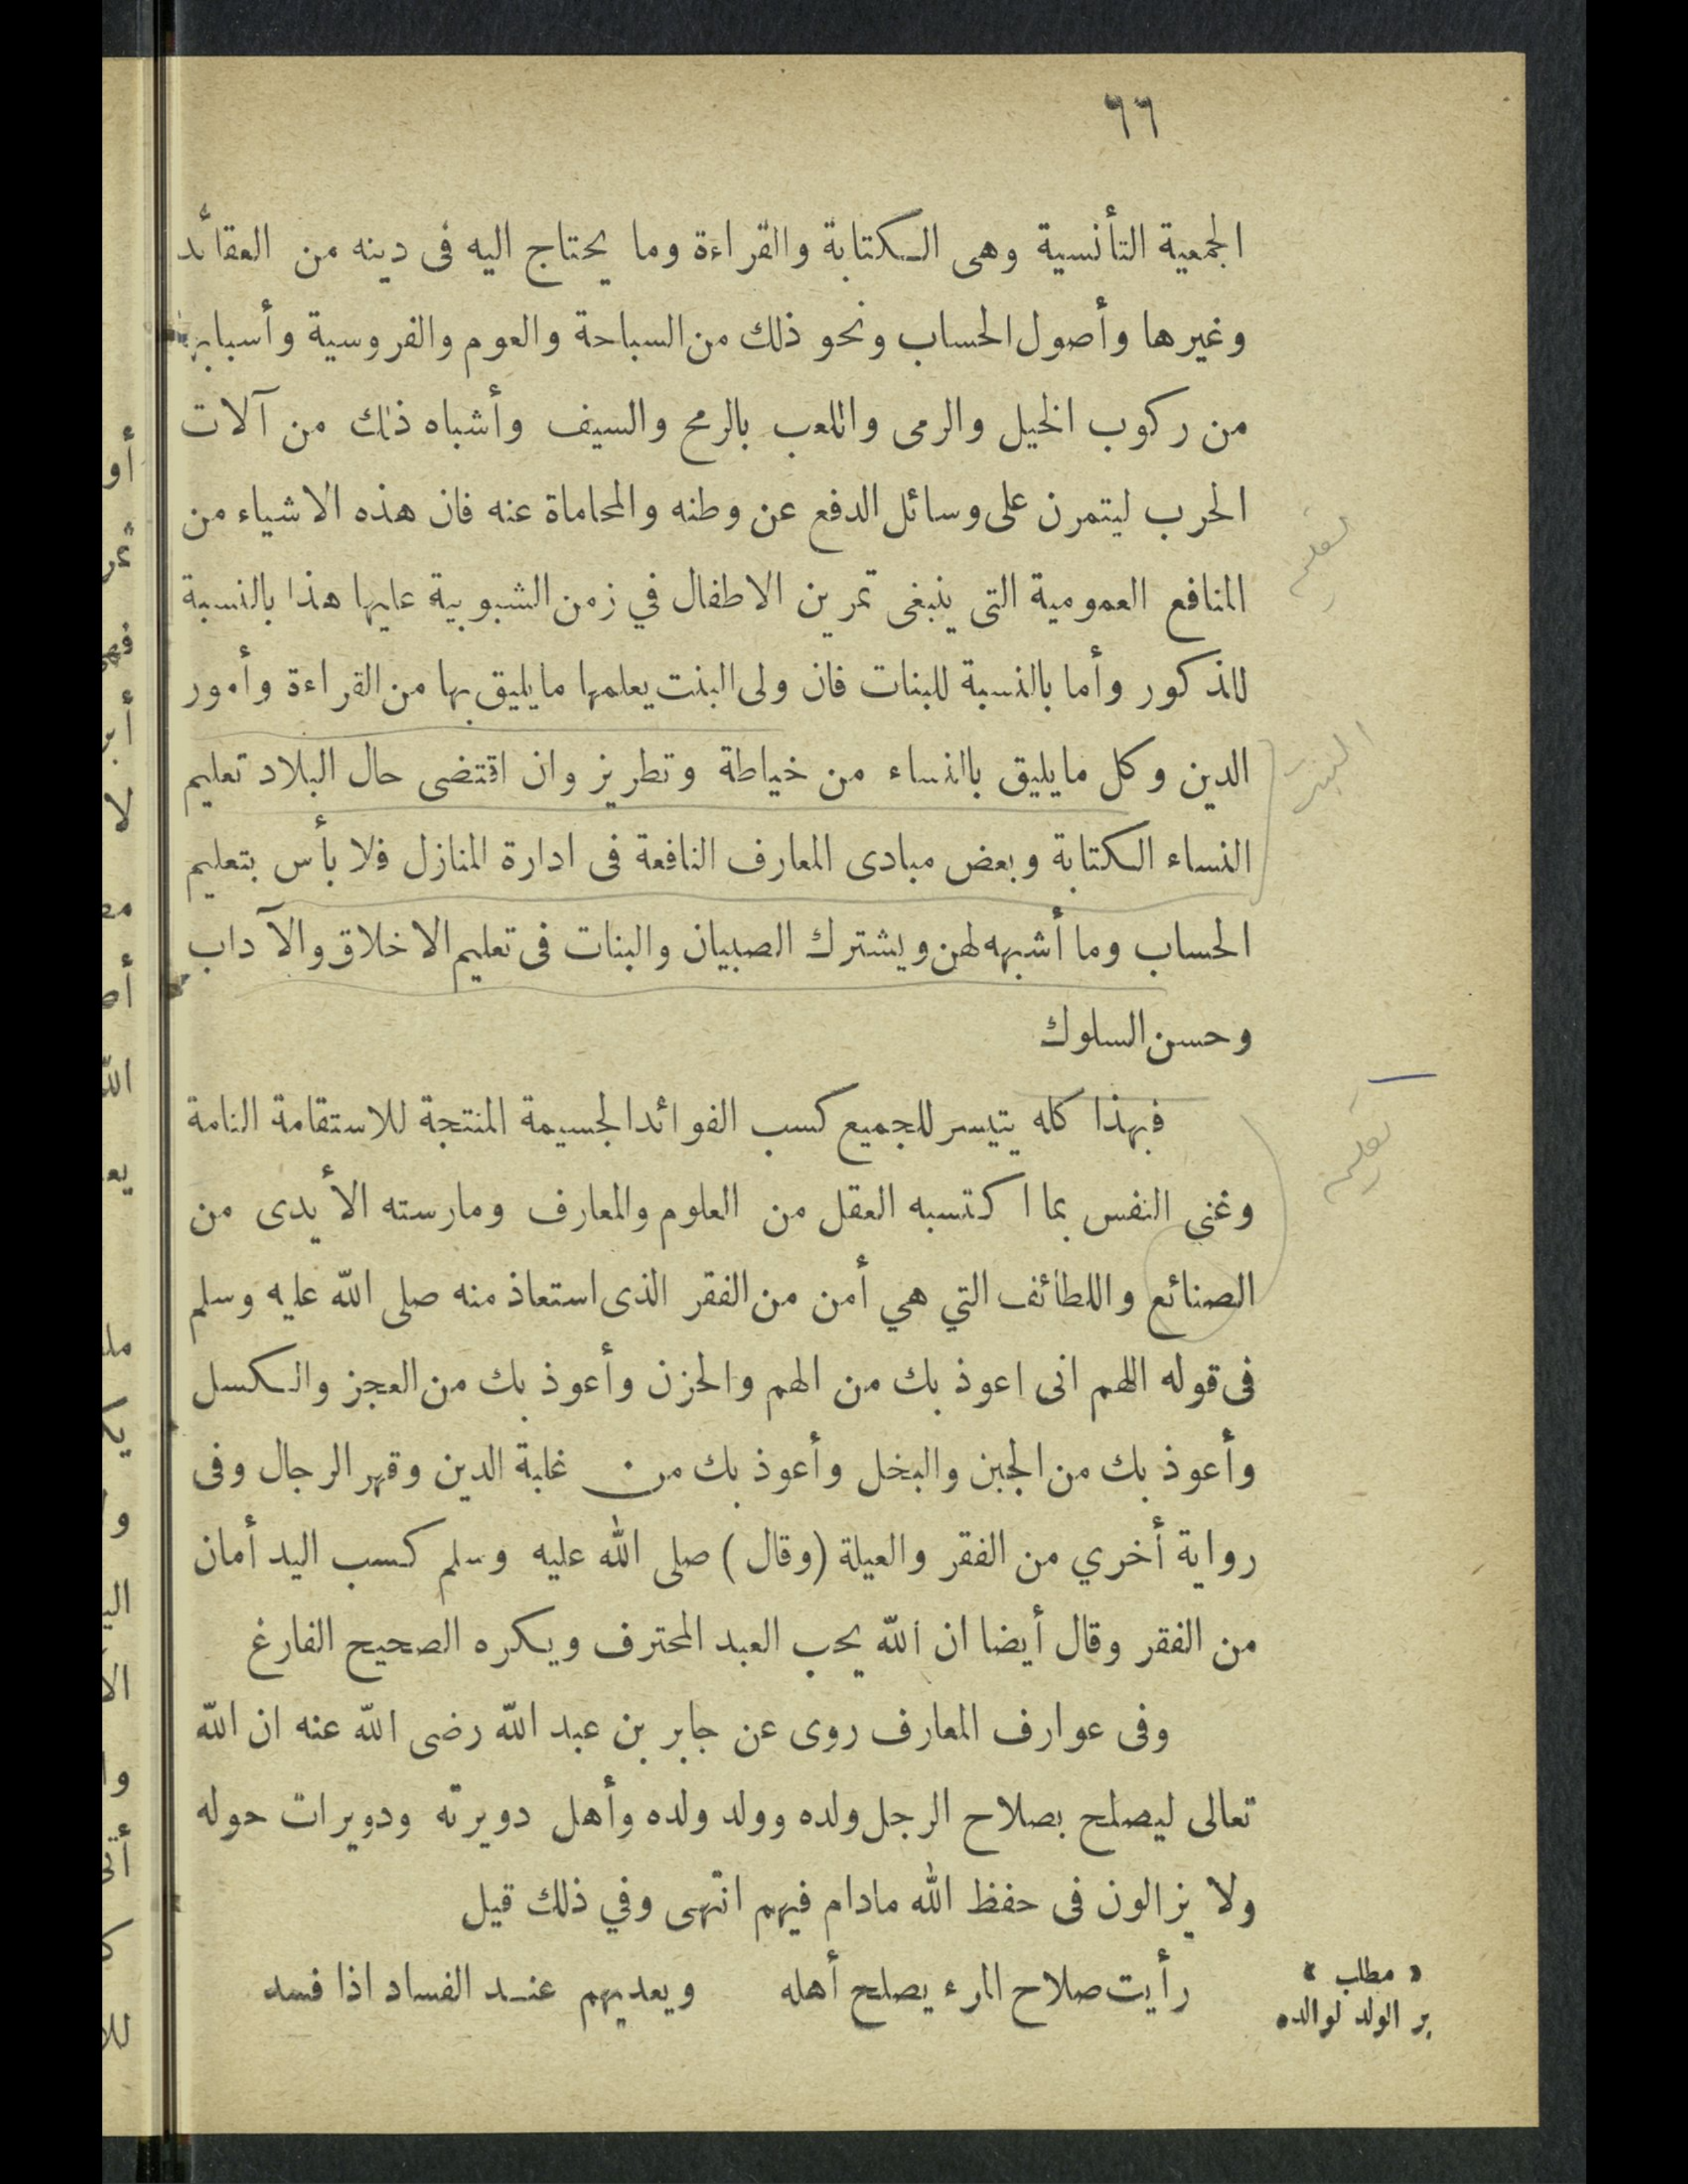 ٦٦
الجمعية التأنسية وهى الكتابة والقراءة وما يحتاج اليه فى دينه من العقائد
وغيرها وأصول الحساب ونحو ذلك من السباحة والعوم والفروسية وأسبابها
من ركوب الخيل والرمى واللعب بالرمح والسيف وأشباه ذلك من آلات
الحرب ليتمرن على وسائل الدفع عن وطنه والمحاماة عنه فان هذه الاشياء من
المنافع العمومية التى ينبغى تمرين الاطفال في زمن الشبوبية عليها هذا بالنسبة
للذكور وأما بالنسبة للبنات فان ولى البنت يعلمها مايليق بها من القراءة وأمور
الدين وكل مايليق بالنساء من خياطة وتطريز وان اقتضى حال البلاد تعليم
النساء الكتابة وبعض مبادى المعارف النافعة فى ادارة المنازل فلا بأس بتعليم
الحساب وما أشبهه لهن ويشترك الصبيان والبنات فى تعليم الاخلاق والآداب
وحسن السلوك
فبهذا كله يتيسر للجميع كسب الفوائد الجسيمة المنتجة للاستقامة التامة
وغنى النفس بما اكتسبه العقل من العلوم والمعارف ومارسته الأيدى من
الصنائع واللطائف التي هي أمن من الفقر الذى استعاذ منه صلى الله عليه وسلم
فى قوله اللهم انى اعوذ بك من الهم والحزن وأعوذ بك من العجز والكسل
وأعوذ بك من الجبن والبخل وأعوذ بك من غلبة الدين وقهر الرجال وفى
رواية أخري من الفقر والعيلة (وقال) صلى الله عليه وسلم كسب اليد أمان
من الفقر وقال أيضا ان الله يحب العبد المحترف ويكره الصحيح الفارغ
وفى عوارف المعارف روى عن جابر بن عبد الله رضى الله عنه ان الله
تعالى ليصلح بصلاح الرجل ولده وولد ولده وأهل دويرته ودويرات حوله
ولا يزالون فى حفظ الله مادام فيهم انتهى وفي ذلك قيل
رأيت صلاح المرء يصلح أهله ويعديهم عند الفساد اذا فسد
« مطلب »
بر الولد لوالده
تعليم
البنت
تعليم